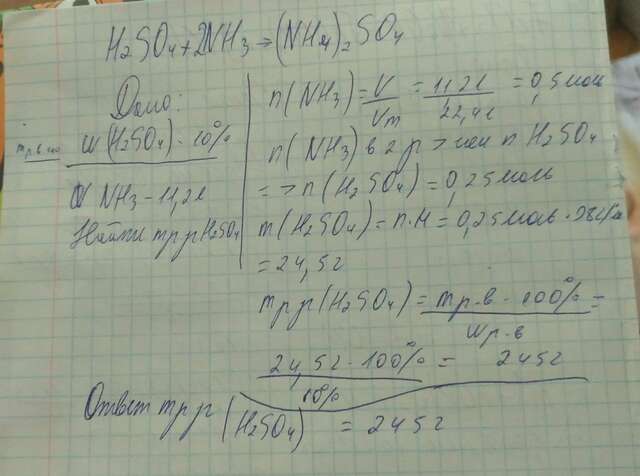 H₂SO₄ + 2NH₃ → (NH₄)₂SO₄
Дано:
w(H₂SO₄) - 10%
V NH₃ - 11,2л
Найти mp-p H₂SO₄
n(NH₃) = V/Vm = 11,2л/22,4л = 0,5моль
n(NH₃) в 2 р > чем n H₂SO₄
=> n(H₂SO₄) = 0,25моль
m(H₂SO₄) = n·M = 0,25моль · 98г/моль
= 24,5г
mp-p(H₂SO₄) = mp.в · 100%/wp.в =
24,5г · 100%/10% = 245г
Ответ mp-p (H₂SO₄) = 245г